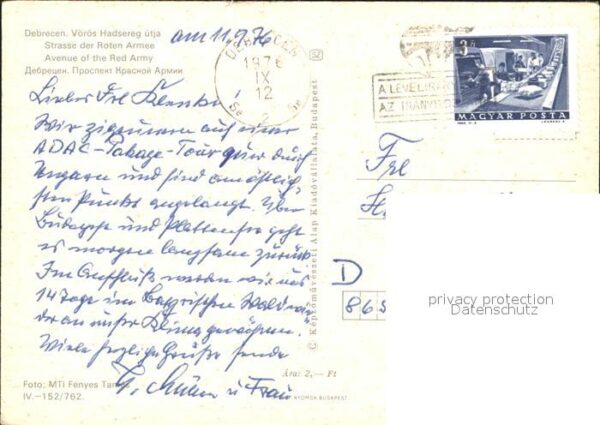 Debrecen. Vörös Hadsereg útja
Strasse der Roten Armee
Avenue of the Red Army
Дебрецен. Проспект Красной Армии
am 11.9.76
DEBRECEN
1976
IX
12
3 Ft
A LEVÉLÍRÁ
AZ IRÁNYÍ
MAGYAR POSTA
Liebes Frl
Wir zigeunern auf einer
ADAC-Pakage-Tour quer durch
Ungarn und sind am östlich-
sten Punkt angelangt. Über
Budapest und Plattensee geht
es morgen langsam zurück
Im Anschluß werden wir uns
14 Tage im Bayrischen Wald wie-
der an unser Klima gewöhnen.
Viele herzliche Grüße sendet
u Frau
Frl
H
D
865
privacy protection
Datenschutz
© Képzőművészeti Alap Kiadóvállalata, Budapest
Ára: 2,— Ft
Foto; MTI Fenyes Tamás
IV.—152/762.
NYOMDA BUDAPEST